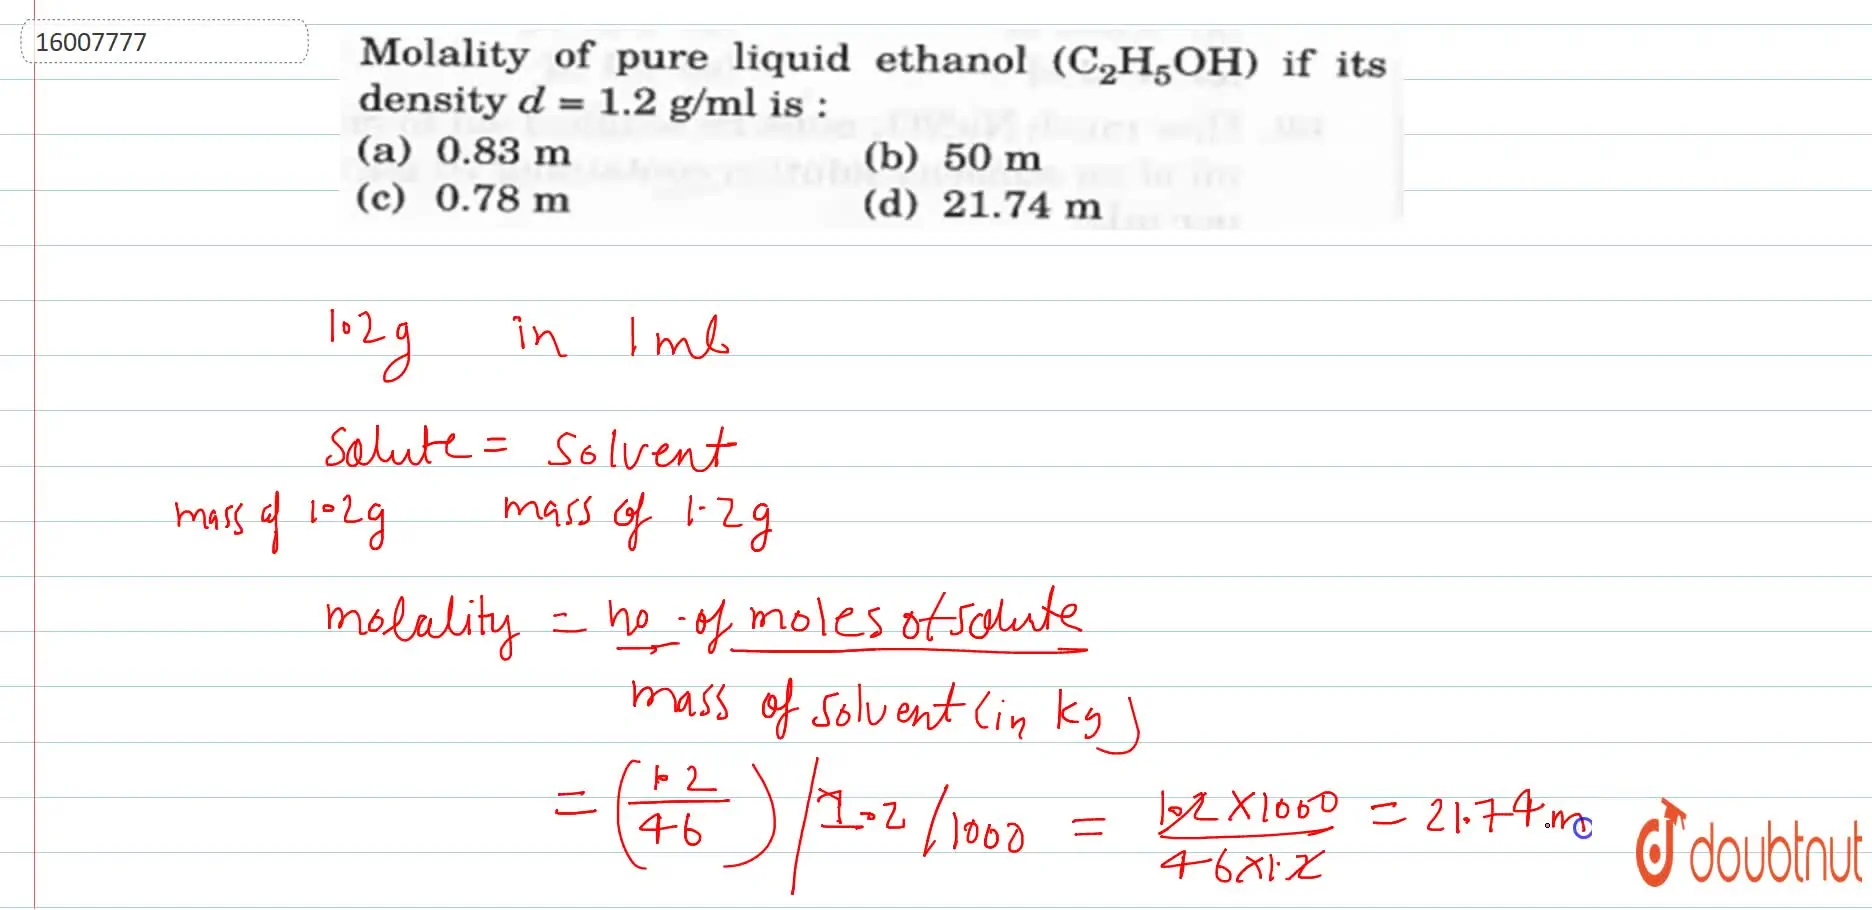 16007777
Molality of pure liquid ethanol (C₂H₅OH) if its
density d = 1.2 g/ml is :
(a) 0.83 m (b) 50 m
(c) 0.78 m (d) 21.74 m
1.2g in 1 ml
Solute = Solvent
mass of 1.2g mass of 1.2g
molality = no. of moles of solute
mass of solvent (in kg)
= (1.2/46) / 1.2/1000 = 1.2 × 1000 / 46 × 1.2 = 21.74 m
doubtnut